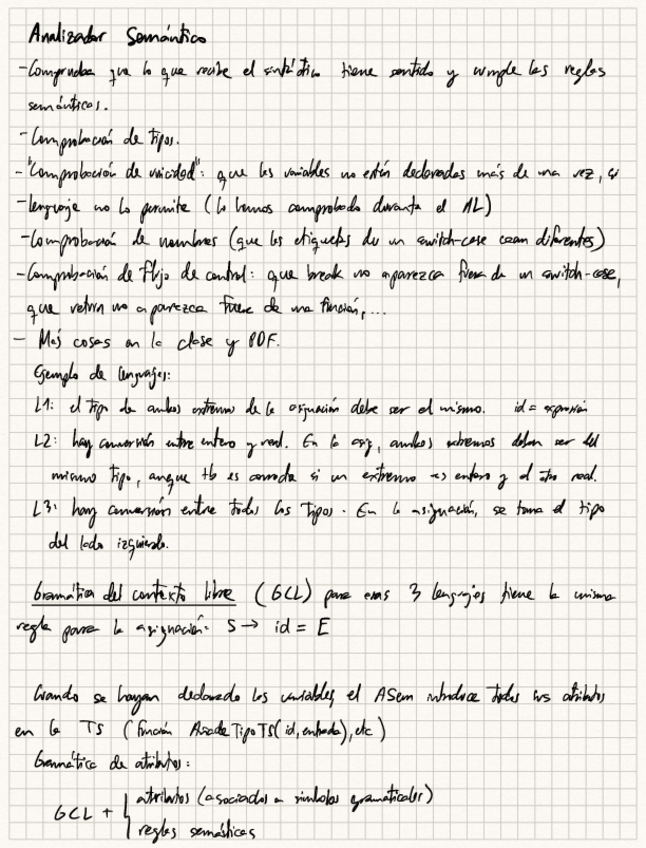 Analizador Semántico
- Comprueba que lo que recibe el sintáctico tiene sentido y cumple las reglas
semánticas.
- Comprobación de tipos.
- "Comprobación de unicidad": que las variables no estén declaradas más de una vez, si
- lenguaje no lo permite (lo hemos comprobado durante el AL)
- Comprobación de nombres (que las etiquetas de un switch-case sean diferentes)
- Comprobación de flujo de control: que break no aparezca fuera de un switch-case,
que return no aparezca fuera de una función,...
- Más cosas en la clase y PDF.
Ejemplo de lenguajes:
L1: el tipo de ambos extremos de la asignación debe ser el mismo. id = expresión
L2: hay conversión entre entero y real. En la asig, ambos extremos deben ser del
mismo tipo, aunque tb es correcta si un extremo es entero y el otro real.
L3: hay conversión entre todos los tipos. En la asignación, se toma el tipo
del lado izquierdo.
Gramática del contexto libre (GCL) para esos 3 lenguajes tiene la misma
regla para la asignación: S → id = E
Cuando se hayan declarado las variables, el ASem introduce todos sus atributos
en la TS (función AñadeTipoTS(id, entrada), etc)
Gramática de atributos:
GCL + { atributos (asociados a símbolos gramaticales)
reglas semánticas